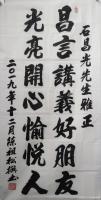 石昌光先生雅正
昌言講義好朋友
光亮開心愉悅人
二〇一九年十二月陳祖松撰書